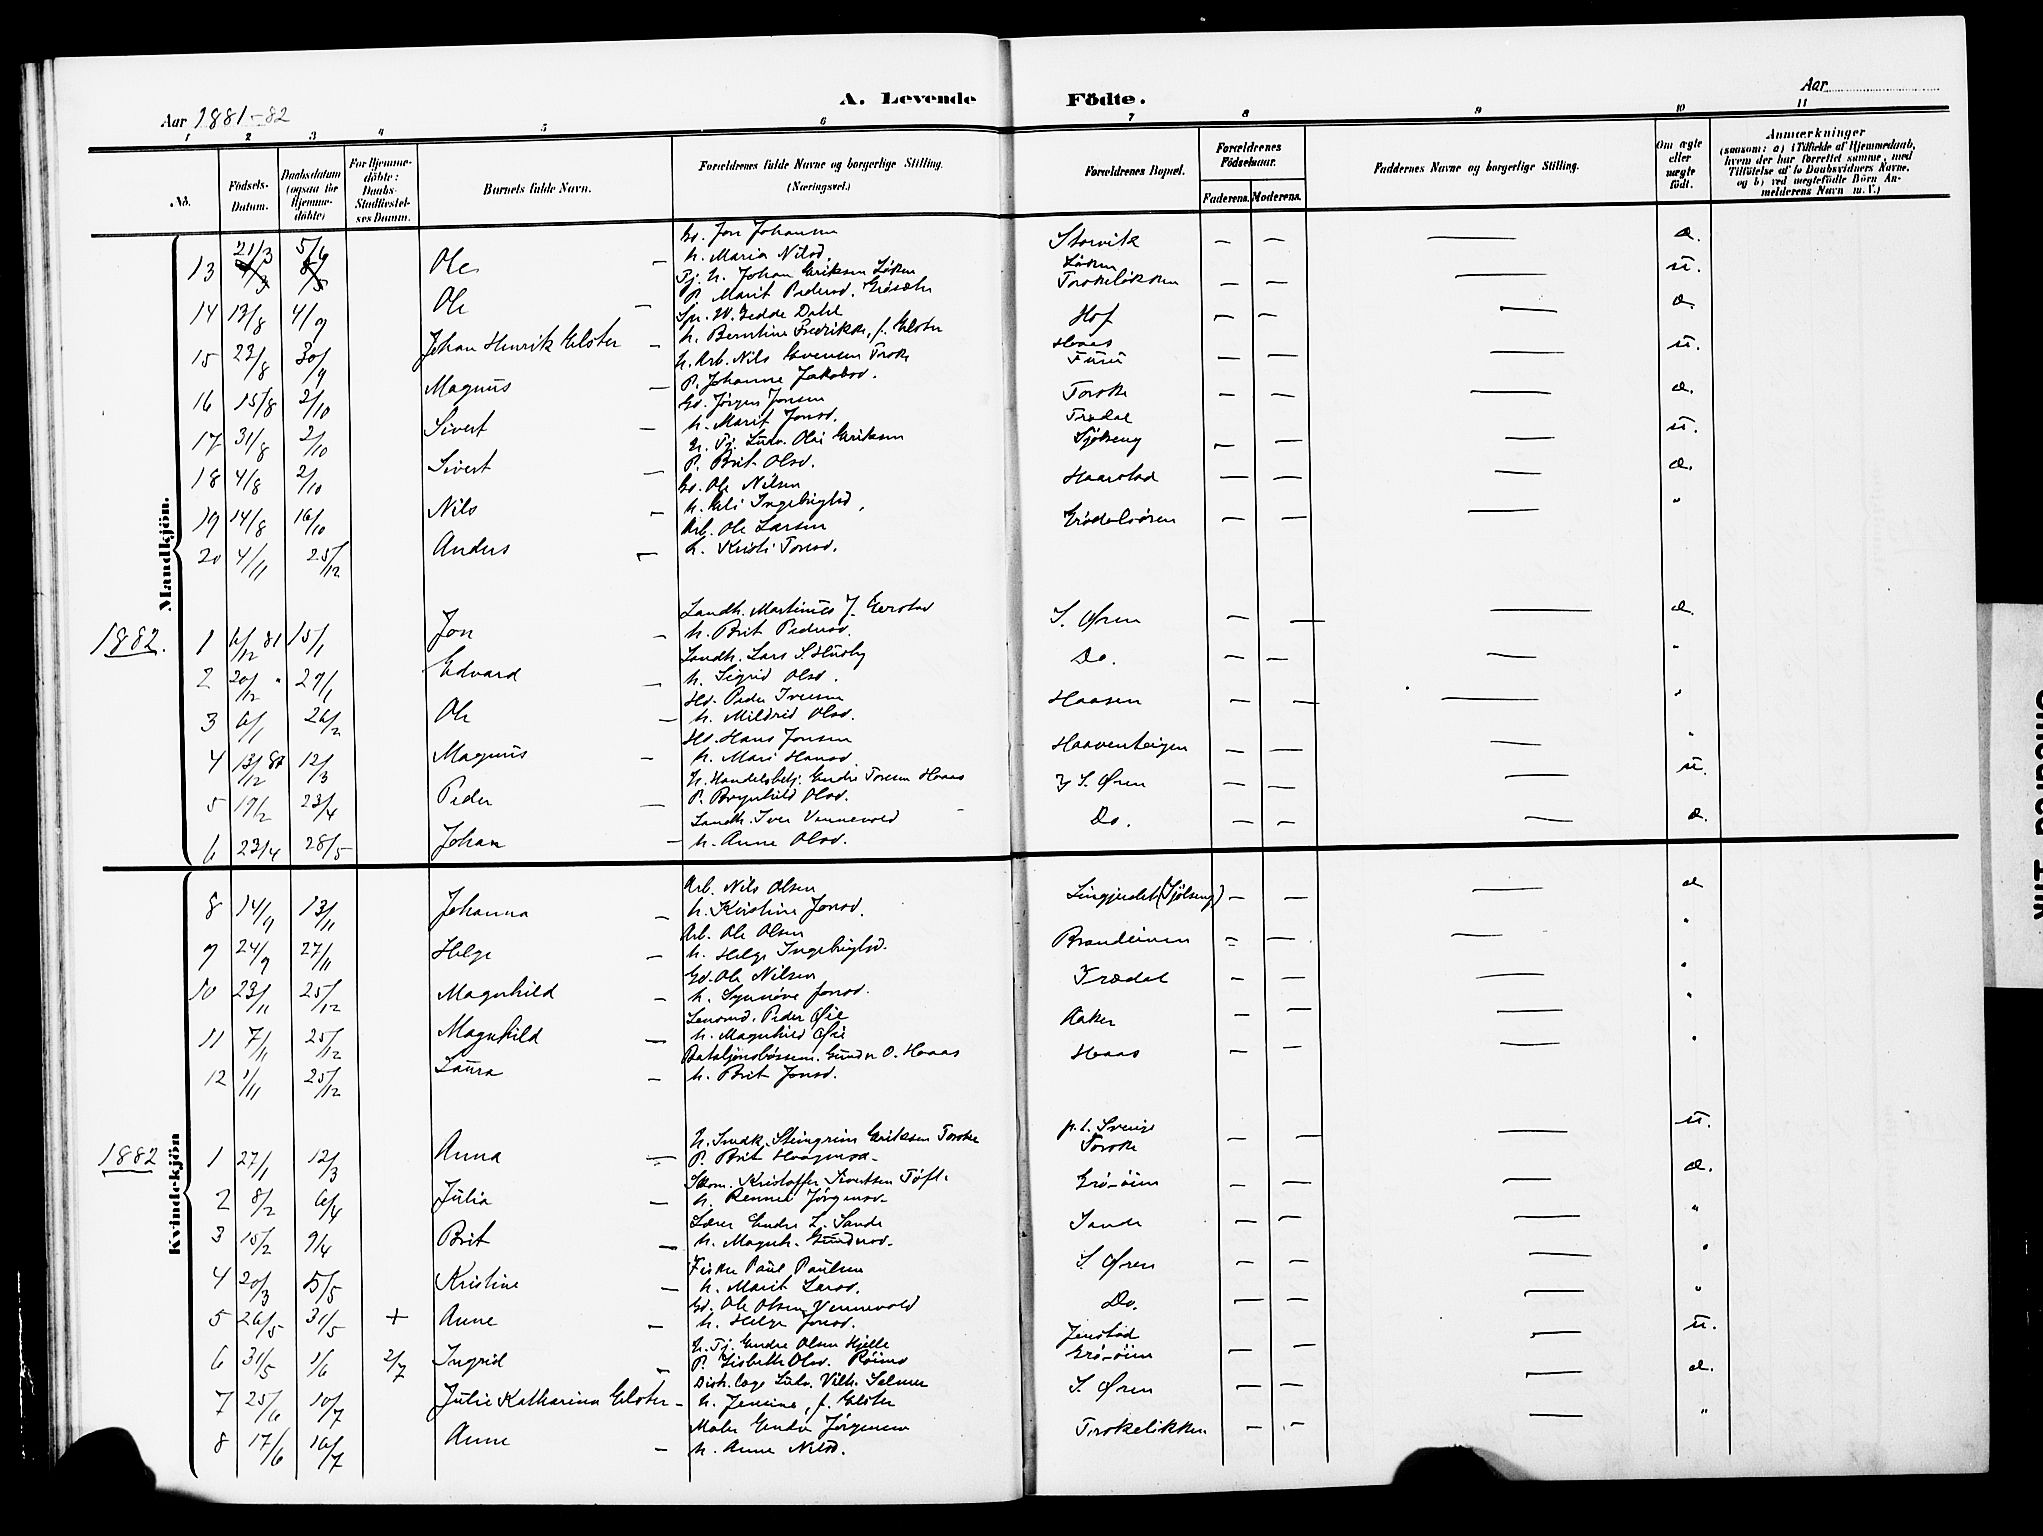 A. Levende Födte.
Aar 1881-82
Aar
1 2 3 4 5 6 7 8 9 10 11
No.
Födsels-Datum.
Daabsdatum (ogsaa för Hjemme-döbte)
For Hjemme-döbte: Daabs-Stadfæstel-ses Datum.
Barnets fulde Navn.
Forældrenes fulde Navne og borgerlige Stilling. (Næringsvei.)
Forældrenes Bopæl.
Forældrenes Födselsaar.
Faderens. Moderens.
Faddernes Navne og borgerlige Stilling.
Om ægte eller uægte födt.
Anmærkninger (saasom: a) i Tilfælde af Hjemmedaab, hvem der har forrettet samme, med Tilföielse af to Daabsvidners Navne, og b) ved uægtefödte Börn An-melderens Navn m. V.)
Mandkjön.
13 21/3 5/6 Ole – Gd. Jon Johansen h. Maria Nilsd. Storvik – – æ.
14 13/8 4/9 Ole – Tj. U. Johan Eriksen Löken P. Marit Pedersd. Grösæter Löken Torskeløkken – – u.
15 23/8 30/9 Johan Henrik Elster – Spr. W. Gedde Dahl h. Berntine Fredrikke, f. Elster Hof – – æ.
16 15/8 2/10 Magnus – U. Arb. Nils Evensen Torske P. Johanne Jakobsd. Haas Furu – – u.
17 31/8 2/10 Sivert – Gd. Jörgen Jonsen h. Marit Jonsd. Torske – – æ.
18 4/8 2/10 Sivert – U. Tj. Ludv. Olai Eriksen P. Brit Olsd. Trædal Sjölseng – – u.
19 14/8 16/10 Nils – Gd. Ole Nilsen h. Eli Ingebrigtsd. Haarstad – – æ.
20 4/11 25/12 Anders – Arb. Ole Larsen h. Kristi Toresd. Grødalsøren – – "
1882.
1 6/12 81 15/1 Jon – Landh. Martinus J. Gjerstad h. Brit Pedersd. S. Øren – – æ.
2 20/12 " 29/1 Edvard – Landh. Lars S. Husby h. Sigrid Olsd. Do. – – "
3 6/1 26/2 Ole – Hd. Peder Iversen h. Mildrid Olsd. Haasen – – "
4 13/12 81 12/3 Magnus – Hd. Hans Jonsen h. Mari Hansd. Haaventeigen – – "
5 19/2 23/4 Peder – U. Handelsbetj. Endre Toresen Haas P. Brynhild Olsd. S. Øren – – u.
6 23/4 28/5 Johan – Landh. Iver Vennevold h. Anne Olsd. Do. – – æ.
Kvindekjön
8 14/9 13/11 Johanna – Arb. Nils Olsen h. Kirstine Jonsd. Lingjerdet (Sjölseng) – – æ
9 24/9 27/11 Helge – Arb. Ole Olsen h. Helge Ingebrigtsd. – – "
10 23/11 25/12 Magnhild – Gd. Ole Nilsen h. Synnöve Jonsd. Trædal – – "
11 7/11 25/12 Magnhild – Lensmd. Peder Øie h. Magnhild Øie Aaker – – "
12 1/11 25/12 Laura – Bataljonsbössem. Gunder O. Haas h. Brit Jonsd. Haas – – "
1882
1 27/1 12/3 Anna – U. Smdk. Steingrim Eriksen Torske P. Brit Haagensd. p.t. Sverige Torske – – u.
2 8/2 6/4 Julia – Skom. Kristoffer Sivertsen Töft. h. Rennei Jörgensd. Grö-öien – – æ.
3 15/2 9/4 Brit – Lærer Endre L. Sande h. Magnh. Gundersd. Sande – – "
4 20/3 5/5 Kristine – Fisker Paul Paulsen h. Marit Larsd. S. Øren – – "
5 26/5 31/5 + Anne – Gd. Ole Olsen Vennevold h. Helge Jonsd. Do. – – "
6 31/5 1/6 2/7 Ingrid – U. Tj. Endre Olsen Hjelle P. Lisbeth Olsd. Röimo Jenstad Grö-öien – – u.
7 25/6 10/7 Julie Katharina Elster – Distr. læge Ludv. Vilh. Selmer h. Jensine, f. Elster S. Øren – – æ.
8 17/6 16/7 Anne – Maler Endre Jörgensen h. Anne Nilsd. Torskeløkken – – "